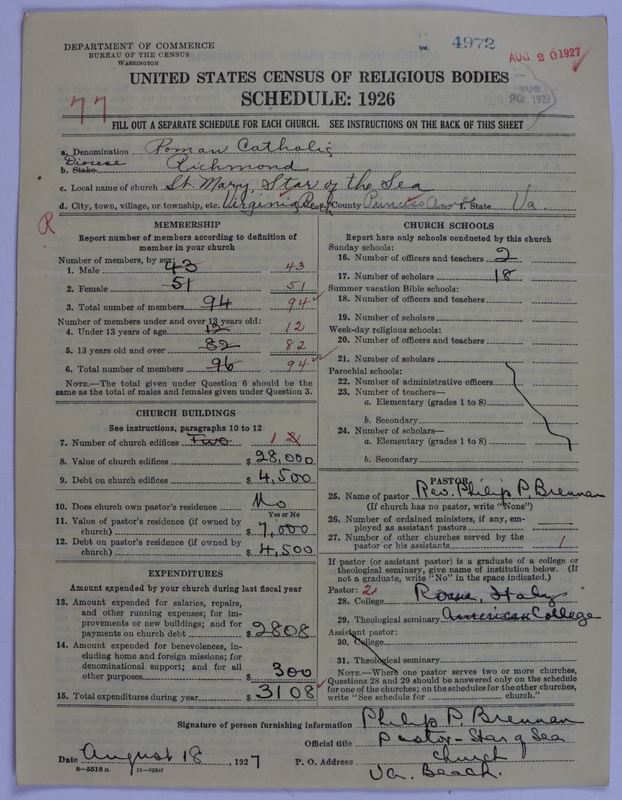 DEPARTMENT OF COMMERCE
BUREAU OF THE CENSUS
WASHINGTON
4972
AUG 20 1927
UNITED STATES CENSUS OF RELIGIOUS BODIES
SCHEDULE: 1926
77
FILL OUT A SEPARATE SCHEDULE FOR EACH CHURCH. SEE INSTRUCTIONS ON THE BACK OF THIS SHEET
a. Denomination Roman Catholic
Diocese
b. State Richmond
c. Local name of church St. Mary, Star of the Sea
d. City, town, village, or township, etc. Virginia Beach County Princess Ann State Va
R
MEMBERSHIP
Report number of members according to definition of member in your church
Number of members, by sex:
1. Male 43 43
2. Female 51 51
3. Total number of members 94 94
Number of members under and over 13 years old:
4. Under 13 years of age 12 12
5. 13 years old and over 82 82
6. Total number of members 96 94
NOTE.—The total given under Question 6 should be the same as the total of males and females given under Question 3.
CHURCH BUILDINGS
See instructions, paragraphs 10 to 12
7. Number of church edifices Two 1 2
8. Value of church edifices $ 28,000
9. Debt on church edifices $ 4,500
10. Does church own pastor's residence? No
Yes or No
11. Value of pastor's residence (if owned by church) $ 7,000
12. Debt on pastor's residence (if owned by church) $ 4,500
EXPENDITURES
Amount expended by your church during last fiscal year
13. Amount expended for salaries, repairs, and other running expenses; for improvements or new buildings; and for payments on church debt $ 2808
14. Amount expended for benevolences, including home and foreign missions; for denominational support; and for all other purposes $ 300
15. Total expenditures during year $ 3108
CHURCH SCHOOLS
Report here only schools conducted by this church
Sunday schools:
16. Number of officers and teachers 2
17. Number of scholars 18
Summer vacation Bible schools:
18. Number of officers and teachers
19. Number of scholars
Week-day religious schools:
20. Number of officers and teachers
21. Number of scholars
Parochial schools:
22. Number of administrative officers
23. Number of teachers—
a. Elementary (grades 1 to 8)
b. Secondary
24. Number of scholars—
a. Elementary (grades 1 to 8)
b. Secondary
PASTOR
25. Name of pastor Rev. Philip P. Brennan
(If church has no pastor, write "None")
26. Number of ordained ministers, if any, employed as assistant pastors
27. Number of other churches served by the pastor or his assistants 1
If pastor (or assistant pastor) is a graduate of a college or theological seminary, give name of institution below. (If not a graduate, write "No" in the space indicated.)
Pastor: 2
28. College Rome, Italy
29. Theological seminary American College
Assistant pastor:
30. College
31. Theological seminary
NOTE.—Where one pastor serves two or more churches, Questions 28 and 29 should be answered only on the schedule for one of the churches; on the schedules for the other churches, write "See schedule for church."
Signature of person furnishing information Philip P. Brennan
Official title Pastor - Star of Sea
Church
Date August 18, 1927 P. O. Address Va. Beach.
8—5518 a 11—9064